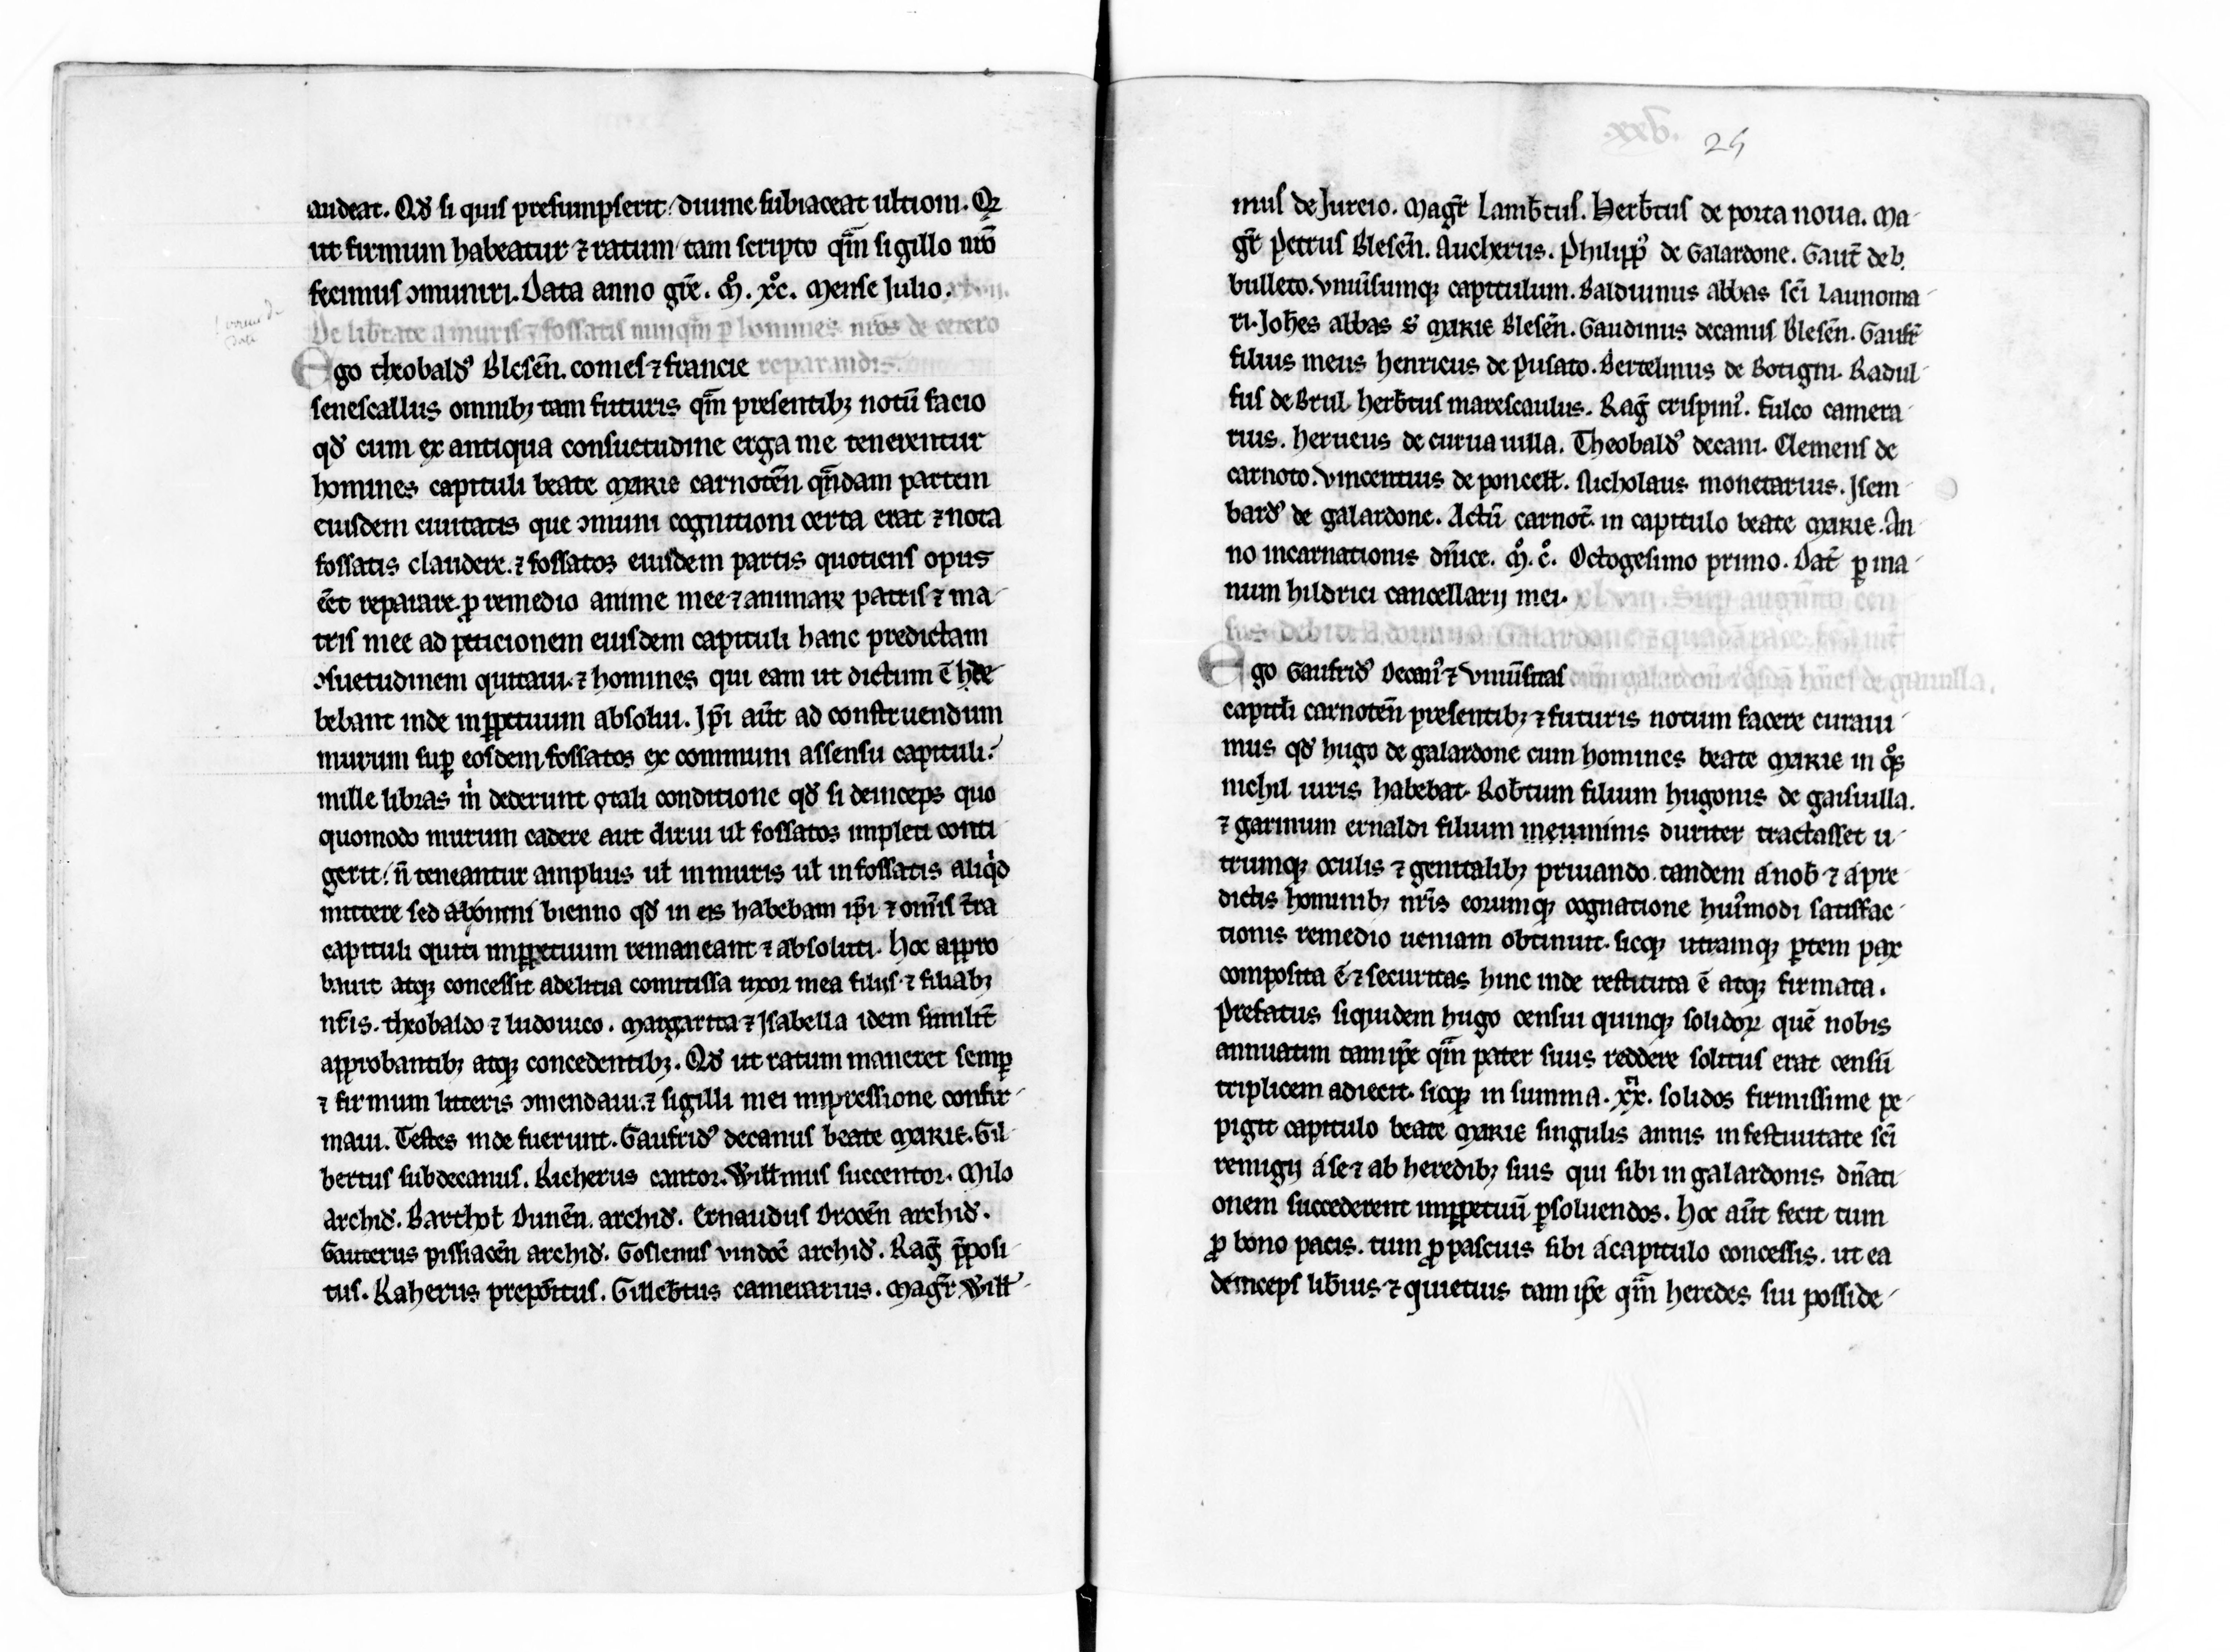 audeat. Qđ si quis presumpserit: diuine subiaceat ultioni. Qꝛ
ut firmum habeatur ⁊ ratum tam scripto qm̄ sigillo nr̄o
fecimus ꝯmuniri. Data anno gr̄e. M̊. C̊. xc̊. Mense Julio. xlvii.
De lib̄tate a muris ⁊ fossatis nunqm̄ ꝑ homines nr̄os de cetero
Ego theobaldꝰ Blesen̄. comes ⁊ francie reparandis.
senescallus omnibꝫ tam futuris qm̄ presentibꝫ notū facio
qđ cum ex antiqua consuetudine erga me tenerentur
homines capituli beate MARIE carnoten̄ qn̄dam partem
eiusdem ciuitatis que ꝯmuni cognitioni certa erat ⁊ nota
fossatis claudere. ⁊ fossatos eiusdem partis quotiens opus
eēt reparare. ꝓ remedio anime mee ⁊ animarꝝ patris ⁊ ma-
tris mee ad peticionem eiusdem capituli hanc predictam
ꝯsuetudinem quitaui. ⁊ homines qui eam ut dictum ē
bebant inde inꝑpetuum absolui. Ip̄i aūt ad construendum
murum suꝑ eosdem fossatos ex communi assensu capituli:
mille libras m̄ dederunt tali conditione qđ si deinceps quo
quomodo murum cadere aut dirui ul̄ fossatos impleri conti-
gerit: n̄ teneantur amplius ul̄ in muris ul̄ in fossatis aliqͥd
mittere sed ab omni bienno qđ in eis habebam ip̄i ⁊ om̄is t̄ra
capituli quiti inꝑpetuum remaneant ⁊ absoluti. Hoc appro
bauit atqꝫ concessit adelitia comitissa uxor mea filiis ⁊ filiabꝫ
nr̄is. theobaldo ⁊ ludouico. Margarita ⁊ Isabella idem similit̄
approbantibꝫ atqꝫ concedentibꝫ. Qđ ut ratum maneret semꝑ
⁊ firmum litteris ꝯmendaui. ⁊ sigilli mei impressione confir-
maui. Testes inde fuerunt. Gaufridꝰ decanus beate MARIE. Gil-
bertus subdecanus. Richerus cantor. Willmus succentor. Milo
archid̄. Barthol̄ Dunen̄. archid̄. Ernaudus Drocen̄ archid̄.
Gauterus pissiacen̄ archid̄. Goslenus vindoc̄ archid̄. Raḡ p̄posi-
tus. Raherus prepo̅itus. Gilleb̄tus camerarius. Magr̄ Will-
xxv. 25
mus de Jureio. Magr̄ Lamb̄tus. Herb̄tus de porta noua. Ma-
gr̄ Petrus Blesen̄. Aucherus. Philippꝰ de Galardone. Gaut̄ de b.
bulleto. Vniūsumqꝫ capitulum. Balduinus abbas sc̄i Launoma-
ri. Joh̄es abbas S̄ MARIE Blesen̄. Gaudinus decanus Blesen̄. Gaufr̄
filius meus henricus de Pusato. Bertelinus de Botigni. Radul-
fus de Brul. herb̄tus marescaulus. Raḡ crispinꝰ. Fulco camera-
rius. herueus de curua uilla. Theobaldꝰ decani. Clemens de
carnoto. Vincentius de poncell̄. Nicholaus monetarius. Isem-
bardꝰ de galardone. Actū carnot̄. in capitulo beate MARIE. An-
no incarnationis dn̄ice. M̊. c̊. Octogesimo primo. Dat̄ ꝑ ma-
num hildrici cancellarij mei. xlviii. Suꝑ augm̄to cen
sus debiti a domino Galardone ⁊ quadā pace fc̄a int̄
Ego Gaufridꝰ Decanꝰ ⁊ Vniūsitas dn̄m galardon̄ ⁊ qͦsdā hōies de
capituli carnoten̄ presentibꝫ ⁊ futuris notum facere curaui-
mus qđ hugo de galardone cum homines beate MARIE in qͦs
nichil iuris habebat. Rob̄tum filium hugonis de gaisuilla.
⁊ garinum ernaldi filium nimis duriter tractasset u-
trumqꝫ oculis ⁊ genitalibꝫ priuando. tandem a nob̄ ⁊ a pre-
dictis hominibꝫ nr̄is eorumqꝫ cognatione huiꝰmodi satisfac-
tionis remedio ueniam obtinuit. sicqꝫ utramqꝫ ꝑtem pax
composita ē ⁊ securitas hinc inde restituta ē atqꝫ firmata.
Prefatus siquidem hugo censui quinqꝫ solidoꝝ quē nobis
annuatim tam ip̄e qm̄ pater suus reddere solitus erat censū
triplicem adiecit. sicqꝫ in summa. xx. solidos firmissime pe-
pigit capitulo beate MARIE singulis annis in festiuitate sc̄i
remigij a se ⁊ ab heredibꝫ suis qui sibi in galardonis dn̄ati-
onem succederent inꝑpetuū ꝑsoluendos. Hoc aūt fecit tum
ꝓ bono pacis. tum ꝓ pascuis sibi a capitulo concessis. ut ea
deinceps lib̄ius ⁊ quietius tam ip̄e qm̄ heredes sui posside-